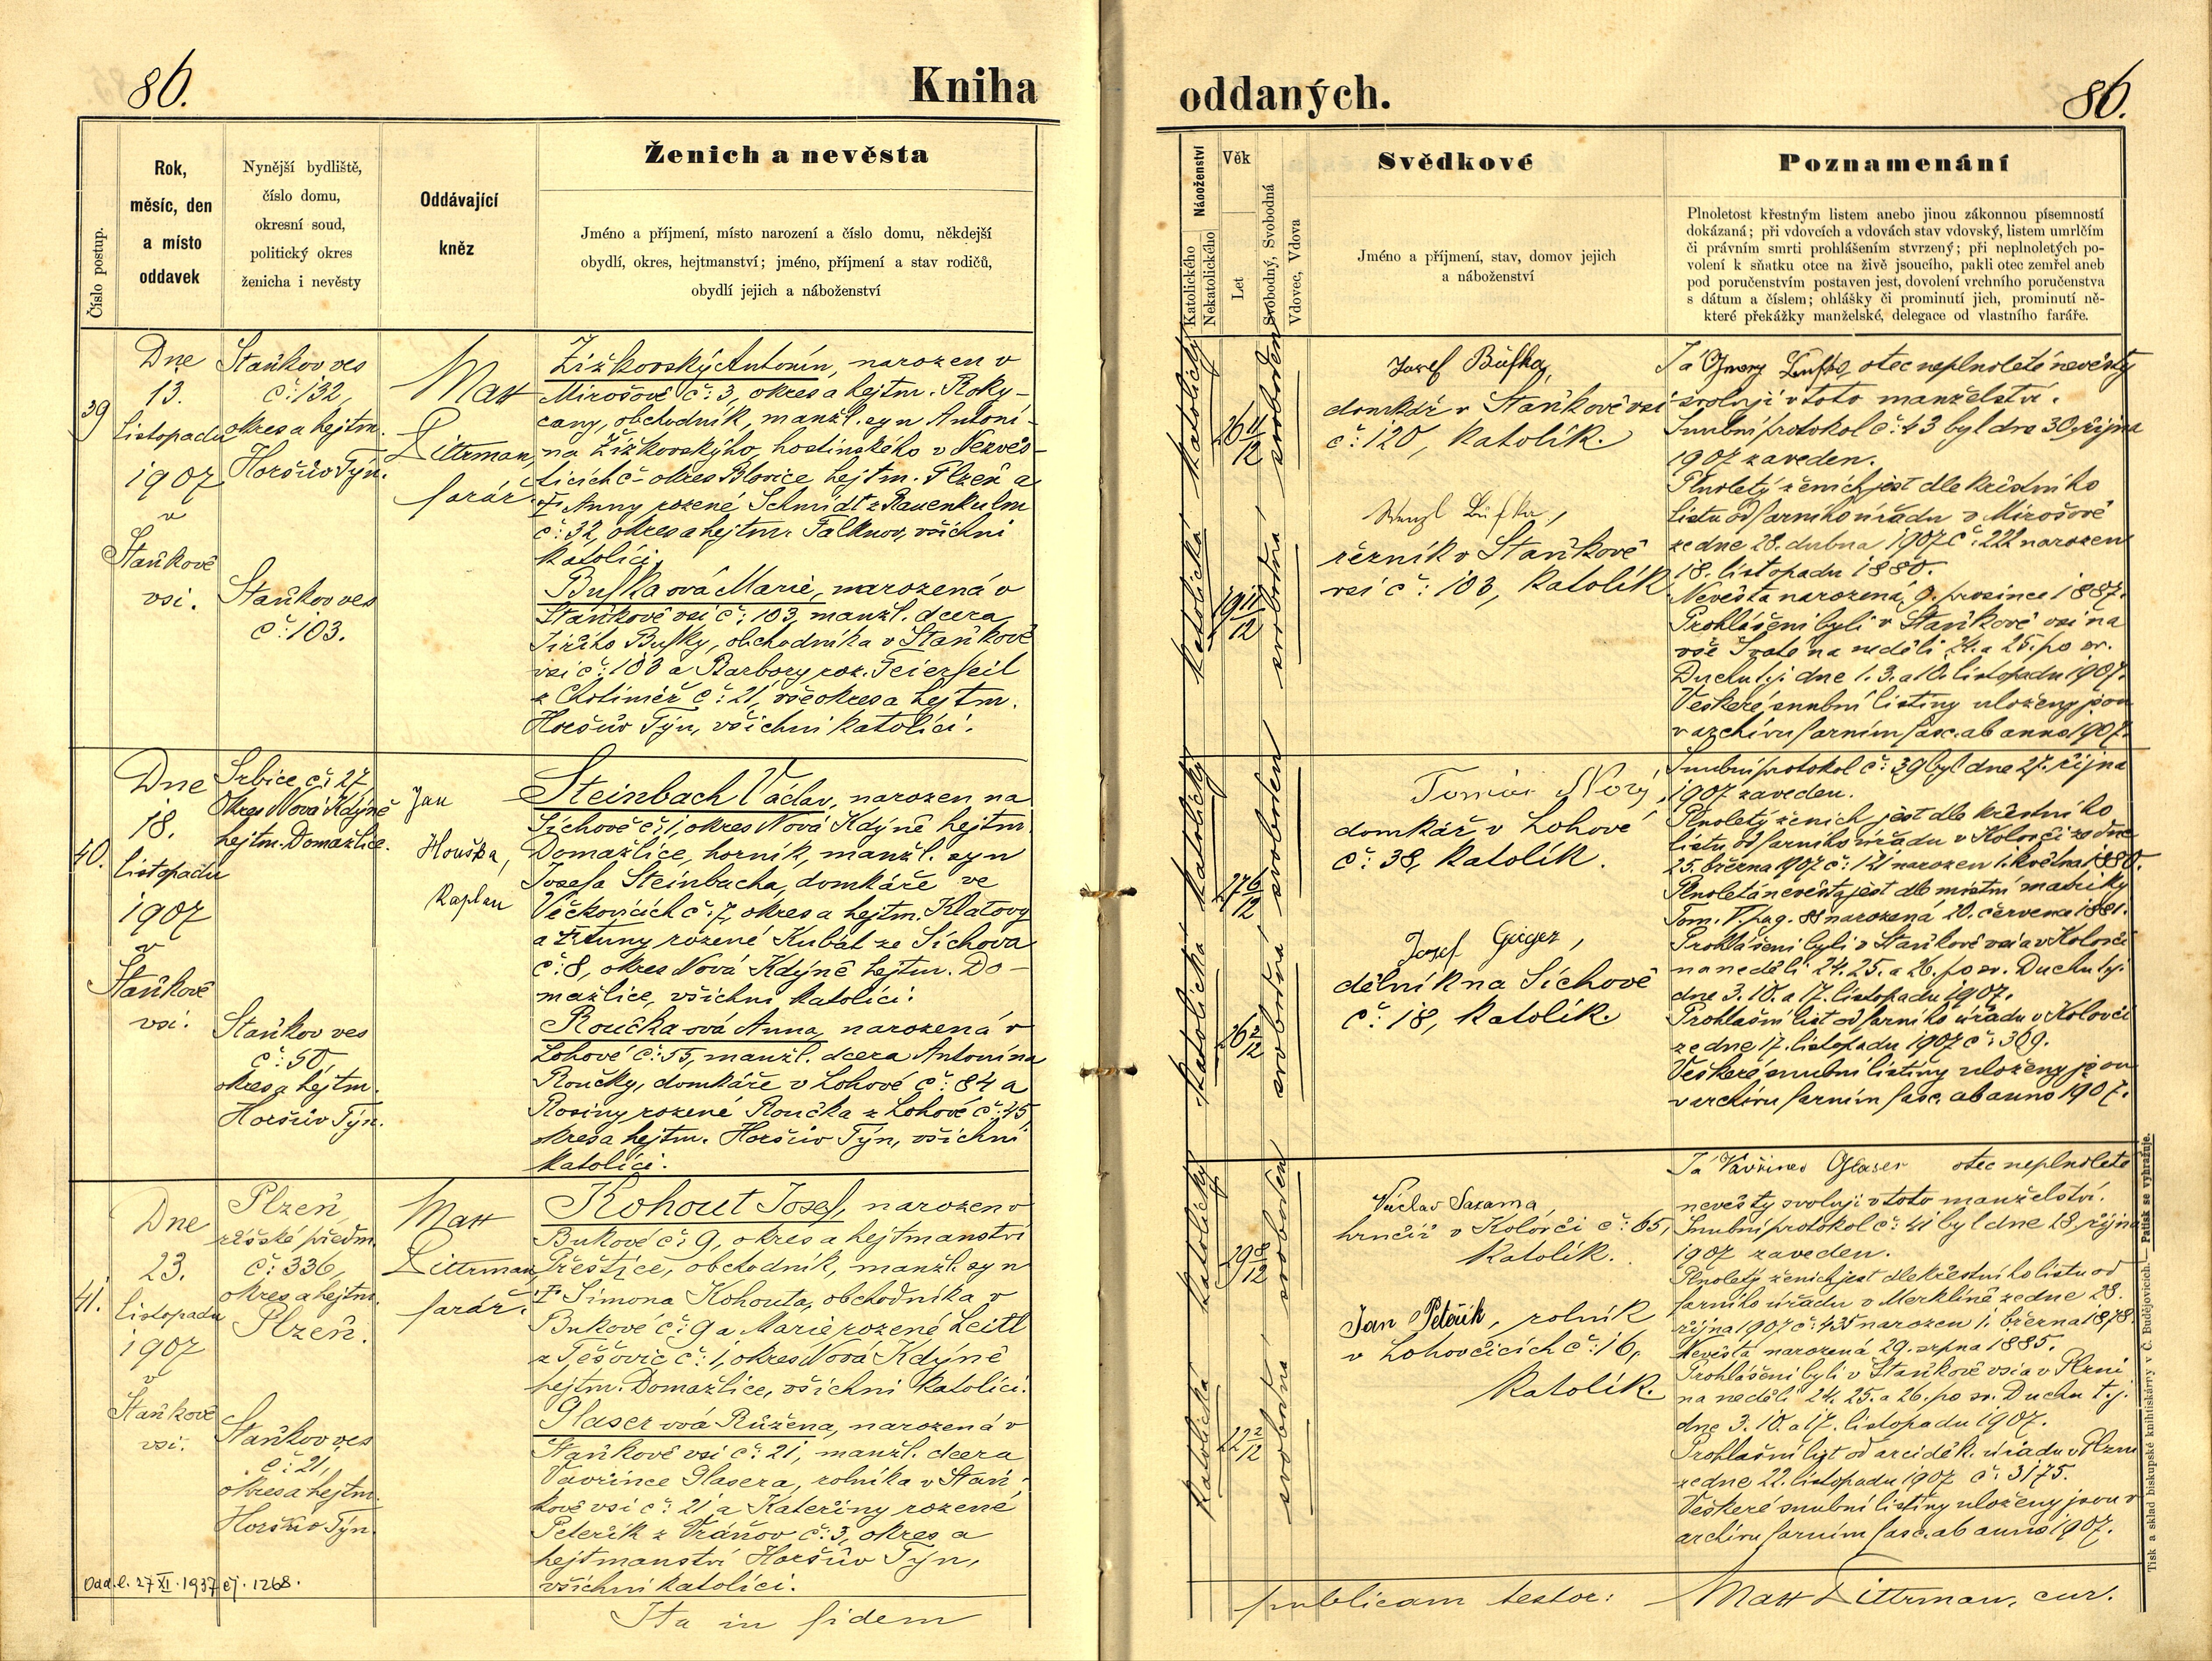 86.
Kniha
Číslo postup.
Rok,
měsíc, den
a místo
oddavek
Nynější bydliště,
číslo domu,
okresní soud,
politický okres
ženicha i nevěsty
Oddávající
kněz
Ženich a nevěsta
Jméno a příjmení, místo narození a číslo domu, někdejší
obydlí, okres, hejtmanství; jméno, příjmení a stav rodičů,
obydlí jejich a náboženství
39
Dne
13.
listopadu
1907
v
Staňkově
vsi.
Staňkov ves
č: 132,
okres a hejtm.
Horšův Týn.
Staňkov ves
č: 103.
Matt
Dittrman,
farář.
Žižkovský Antonín, narozen v
Mirošově č: 3, okres a hejtm. Roky-
cany, obchodník, manžl. syn Antoní-
na Žižkovskýho, hostinského v Nezvěs-
ticích č- okres Blovice hejtm. Plzeň a
† Anny rozené Schmidt z Rauenkulm
č: 32, okres a hejtm. Falknov, všichni
katolíci.
Bufka ová Marie, narozená v
Staňkově vsi č: 103, manžl. dcera
Jiřího Bufky, obchodníka v Staňkově
vsi č: 103 a Barbory roz. Feierfeil
z Chotiměř č: 21, vše okres a hejtm.
Horšův Týn, všichni katolíci.
40.
Dne
18.
listopadu
1907
v
Staňkově
vsi.
Srbice č: 27,
okres Nová Kdýně
hejtm. Domažlice.
Staňkov ves
č: 50,
okres a hejtm.
Horšův Týn.
Jan
Houška,
kaplan
Steinbach Václav, narozen na
Síchově č: 1, okres Nová Kdýně hejtm.
Domažlice, horník, manžl. syn
Josefa Steinbacha, domkáře ve
Věčkovicích č: 7, okres a hejtm. Klatovy
a † Anny rozené Kubát ze Síchova
č: 8, okres Nová Kdýně hejtm. Do-
mažlice, všichni katolíci.
Roučka ová Anna, narozená v
Lohově č: 55, manžl. dcera Antonína
Roučky, domkáře v Lohově č: 84 a
Rosiny rozené Roučka z Lohově č: 45,
okres a hejtm. Horšův Týn, všichni
katolíci.
41.
Dne
23.
listopadu
1907
v
Staňkově
vsi.
Plzeň
říšské předm.
č: 336,
okres a hejtm.
Plzeň.
Staňkov ves
č: 21,
okres a hejtm.
Horšův Týn
Matt
Dittrman
farář.
Kohout Josef, narozen v
Bukové č: 9, okres a hejtmanství
Přeštice, obchodník, manžl. syn
† Šimona Kohouta, obchodníka v
Bukové č: 9 a Marie rozené Leitl
z Těšovic č: 1, okres Nová Kdýně
hejtm. Domažlice, všichni katolíci.
Glaser ová Růžena, narozená v
Staňkově vsi č: 21, manžl. dcera
Vavřince Glasera, rolníka v Staň-
kově vsi č: 21 a Kateřiny rozené
Peteřík z Vráňov č: 3, okres a
hejtmanství Horšův Týn,
všichni katolíci.
Odd. l. 27 XI. 1937 čj. 1268.
Ita in fidem
oddaných.
86.
Náboženství
Katolického
Nekatolického
Věk
Let
Svobodný, Svobodná
Vdovec, Vdova
Svědkové
Jméno a příjmení, stav, domov jejich
a náboženství
Poznamenání
Plnoletost křestným listem anebo jinou zákonnou písemností
dokázaná; při vdovcích a vdovách stav vdovský, listem umrlčím
či právním smrti prohlášením stvrzený; při neplnoletých po-
volení k sňatku otce na živě jsoucího, pakli otec zemřel aneb
pod poručenstvím postaven jest, dovolení vrchního poručenstva
s dátum a číslem; ohlášky či prominutí jich, prominutí ně-
které překážky manželské, delegace od vlastního faráře.
katolický
26 11/12
svoboden
katolická
19 11/12
svobodná
Josef Bufka,
domkář v Staňkově vsi
č: 120, katolík.
Wenzl Bufka,
řezník v Staňkově
vsi č: 103, katolík
Já Georg Bufka, otec neplnoleté nevěsty
svoluji v toto manželství.
Snubní protokol č: 43 byl dne 30. října
1907 zaveden.
Plnoletý ženich jest dle křestního
listu od farního úřadu v Mirošově
ze dne 28. dubna 1907 č: 222 narozen
18. listopadu 1880.
Nevěsta narozená 9. prosince 1887.
Prohlášeni byli v Staňkově vsi na
vše Svaté na neděli 24. a 25. po sv.
Duchu t.j. dne 1. 3. a 10. listopadu 1907.
Veškeré snubní listiny uloženy jsou
v archivu farním fasc. ab anno 1907.
katolický
27 6/12
svoboden
katolická
26 2/12
svobodná
Tomáš Nový,
domkář v Lohově
č: 38, katolík.
Josef Geiger,
dělník na Síchově
č: 18, katolík.
Snubní protokol č: 39 byl dne 27. října
1907 zaveden.
Plnoletý ženich jest dle křestního
listu od farního úřadu v Kolovči ze dne
25. března 1907 č: 121 narozen 1. května 1880.
Plnoletá nevěsta jest dle místní matriky
Tom. V. pag. 88 narozená 20. července 1881.
Prohlášeni byli v Staňkově vsi a v Kolovči
na neděli 24. 25. a 26. po sv. Duchu t.j.
dne 3. 10. a 17. listopadu 1907.
Prohlašní list od farního úřadu v Kolovči
ze dne 17. listopadu 1907 č: 309.
Veškeré snubní listiny uloženy jsou
v archivu farním fasc. ab anno 1907.
katolický
29 8/12
svoboden
katolická
22 2/12
svobodná
Václav Sazama,
hrnčíř v Kolovči č: 65,
katolík.
Jan Peteřík, rolník
v Lohovčicích č: 16,
katolík.
Já Vavřinec Glaser otec neplnoleté
nevěsty svoluji v toto manželství.
Snubní protokol č: 41 byl dne 28. října
1907 zaveden.
Plnoletý ženich jest dle křestního listu od
farního úřadu v Merklíně ze dne 28.
října 1907 č: 435 narozen 1. března 1878.
Nevěsta narozená 29. srpna 1885.
Prohlášeni byli v Staňkově vsi a v Plzni
na neděli 24. 25. a 26. po sv. Duchu t.j.
dne 3. 10. a 17. listopadu 1907.
Prohlašní list od arciděk. úřadu v Plzni
ze dne 22. listopadu 1907 č: 3175.
Veškeré snubní listiny uloženy jsou v
archivu farním fasc. ab anno 1907.
publicam testor: Matt Dittrman, cur.
Tisk a sklad biskupské knihtiskárny v Č. Budějovicích. — Patisk se vyhražuje.